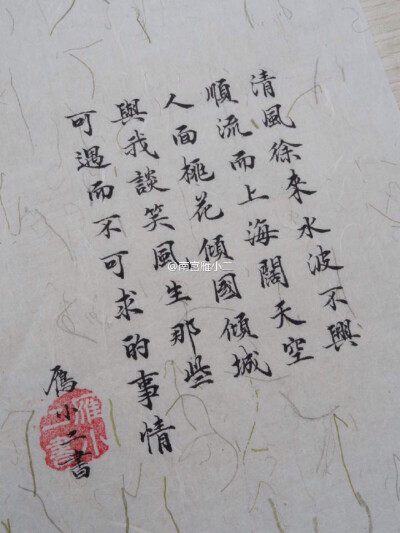 清風徐來水波不興
順流而上海闊天空
人面桃花傾國傾城
與我談笑風生那些
可遇而不可求的事情
鴈小二書